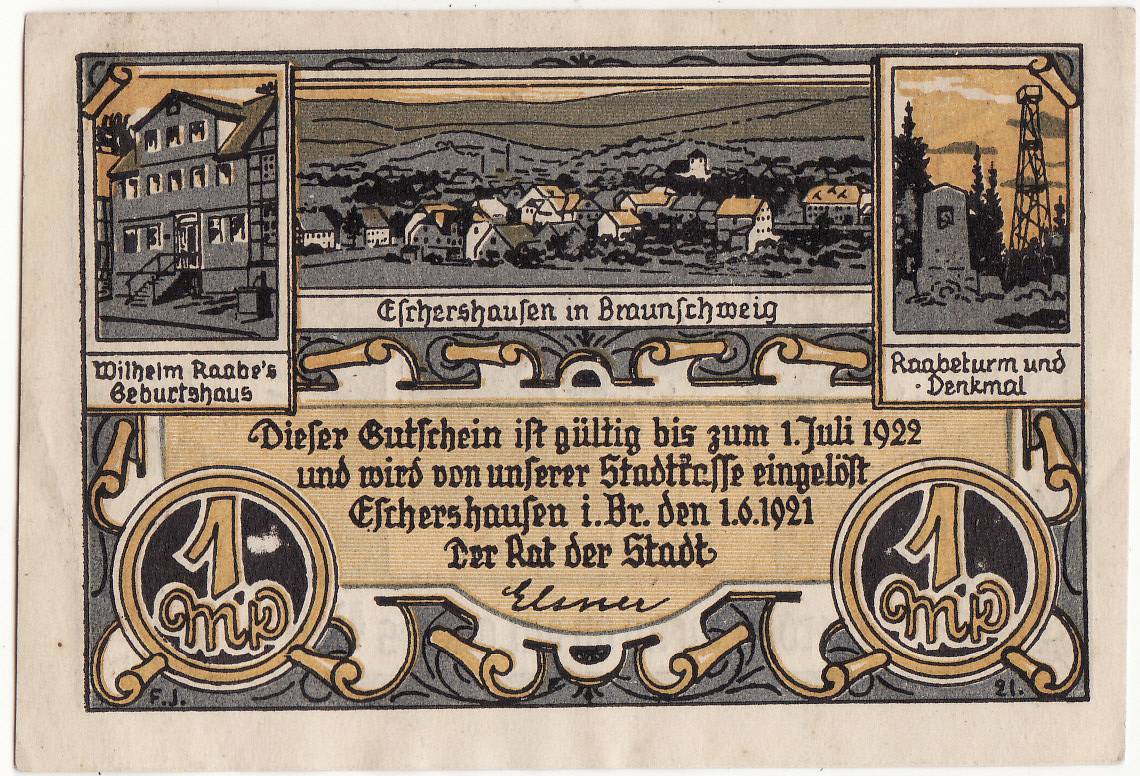 Eschershausen in Braunschweig
Wilhelm Raabe's
Geburtshaus
Raabeturm und
Denkmal
Dieser Gutschein ist gültig bis zum 1. Juli 1922
und wird von unserer Stadtkasse eingelöst
Eschershausen i. Br. den 1.6.1921
Der Rat der Stadt
Elsner
1
M'k
1
M'k
F.J.
21.